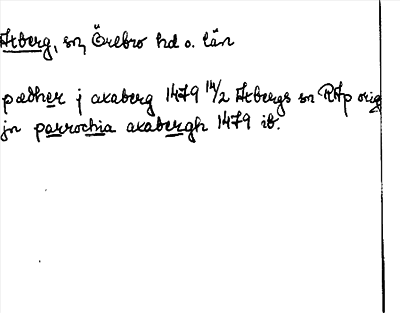 Axberg, sn, Örebro hd o. län
pædher j axaberg 1479 14/2 Axbergs sn RAp orig
jn parrochia axabergh 1479 ib.